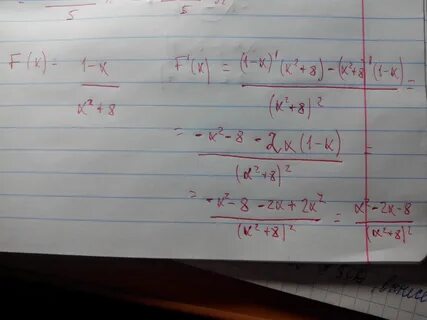 5 5
F(x) = (1-x)/(x²+8) F'(x) = ((1-x)'(x²+8)-(x²+8)'(1-x))/(x²+8)² =
= (-x²-8-2x(1-x))/(x²+8)² =
= (-x²-8-2x+2x²)/(x²+8)² = (x²-2x-8)/(x²+8)²